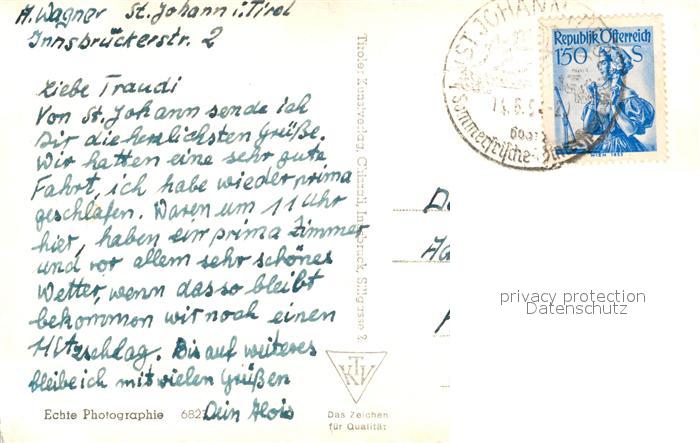 A. Wagner St. Johann i. Tirol
Innsbrückerstr. 2
Liebe Traudi
Von St. Johann sende ich
Dir die herzlichsten Grüße.
Wir hatten eine sehr gute
Fahrt, ich habe wieder prima
geschlafen. Waren um 11 Uhr
hier, haben ein prima Zimmer
und vor allem sehr schönes
Wetter, wenn das so bleibt
bekommen wir noch einen
Hitzschlag. Bis auf weiteres
bleibe ich mit vielen Grüßen
Dein Alois
Echte Photographie 682
Tiroler Kunstverlag, Chizzali, Innsbruck, Sillgasse 2
TKV
Das Zeichen
für Qualität
ST. JOHANN
Sommerfrische
Republik Österreich
150 S
WIEN 1853
privacy protection
Datenschutz